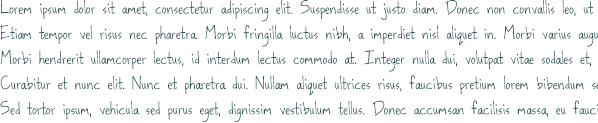 Lorem ipsum dolor sit amet, consectetur adipiscing elit. Suspendisse ut justo diam. Donec non convallis leo, ut
Etiam tempor vel risus nec pharetra. Morbi fringilla luctus nibh, a imperdiet nisl aliquet in. Morbi varius augu
Morbi hendrerit ullamcorper lectus, id interdum lectus commodo at. Integer nulla dui, volutpat vitae sodales et,
Curabitur et nunc elit. Nunc et pharetra dui. Nullam aliquet ultrices risus, faucibus pretium lorem bibendum s
Sed tortor ipsum, vehicula sed purus eget, dignissim vestibulum tellus. Donec accumsan facilisis massa, eu fauci